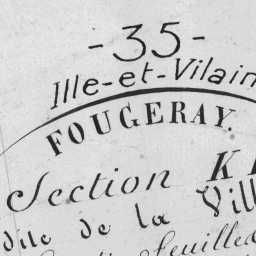 -35-
Ille-et-Vilain
FOUGERAY.
Section K
dite de la Vill
feuille